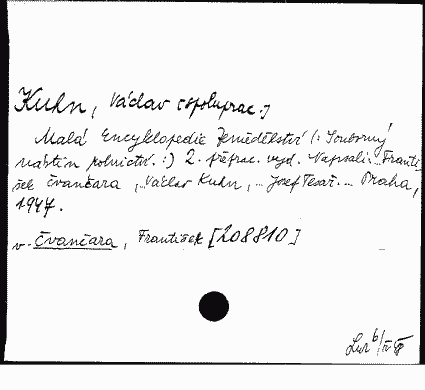 Kuhn, Václav (spoluprac.)
Malá Encyklopedie Zemědělství /: Souborný
nástin rolnictví. :) 2. přeprac. vyd. Napsali ... Franti-
šek Čvančara, ... Václav Kuhn, ... Josef Tesař ... Praha,
1947.
v. Čvančara, František [208810]